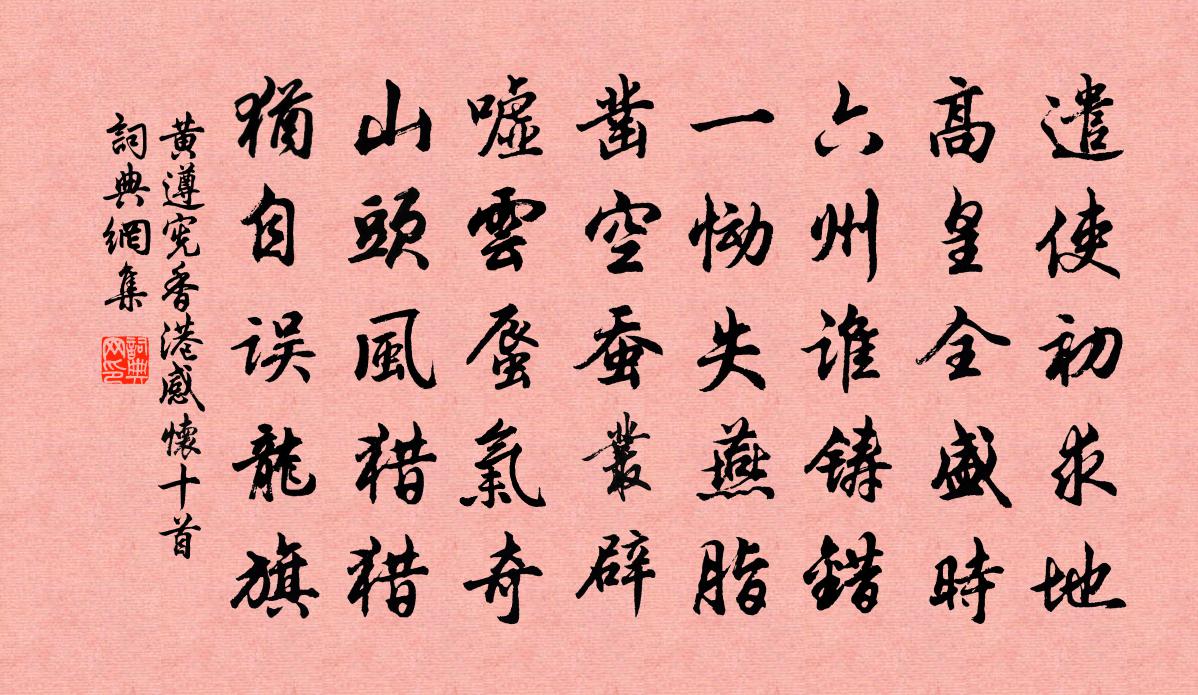 遣使初求地
高皇全盛時
六州誰鑄錯
一慟失燕脂
凿空蚕叢辟
嘘雲蜃氣奇
山頭風猎猎
猶自误龍旗
黄遵宪香港感懷十首
詞典網集
詞典网印